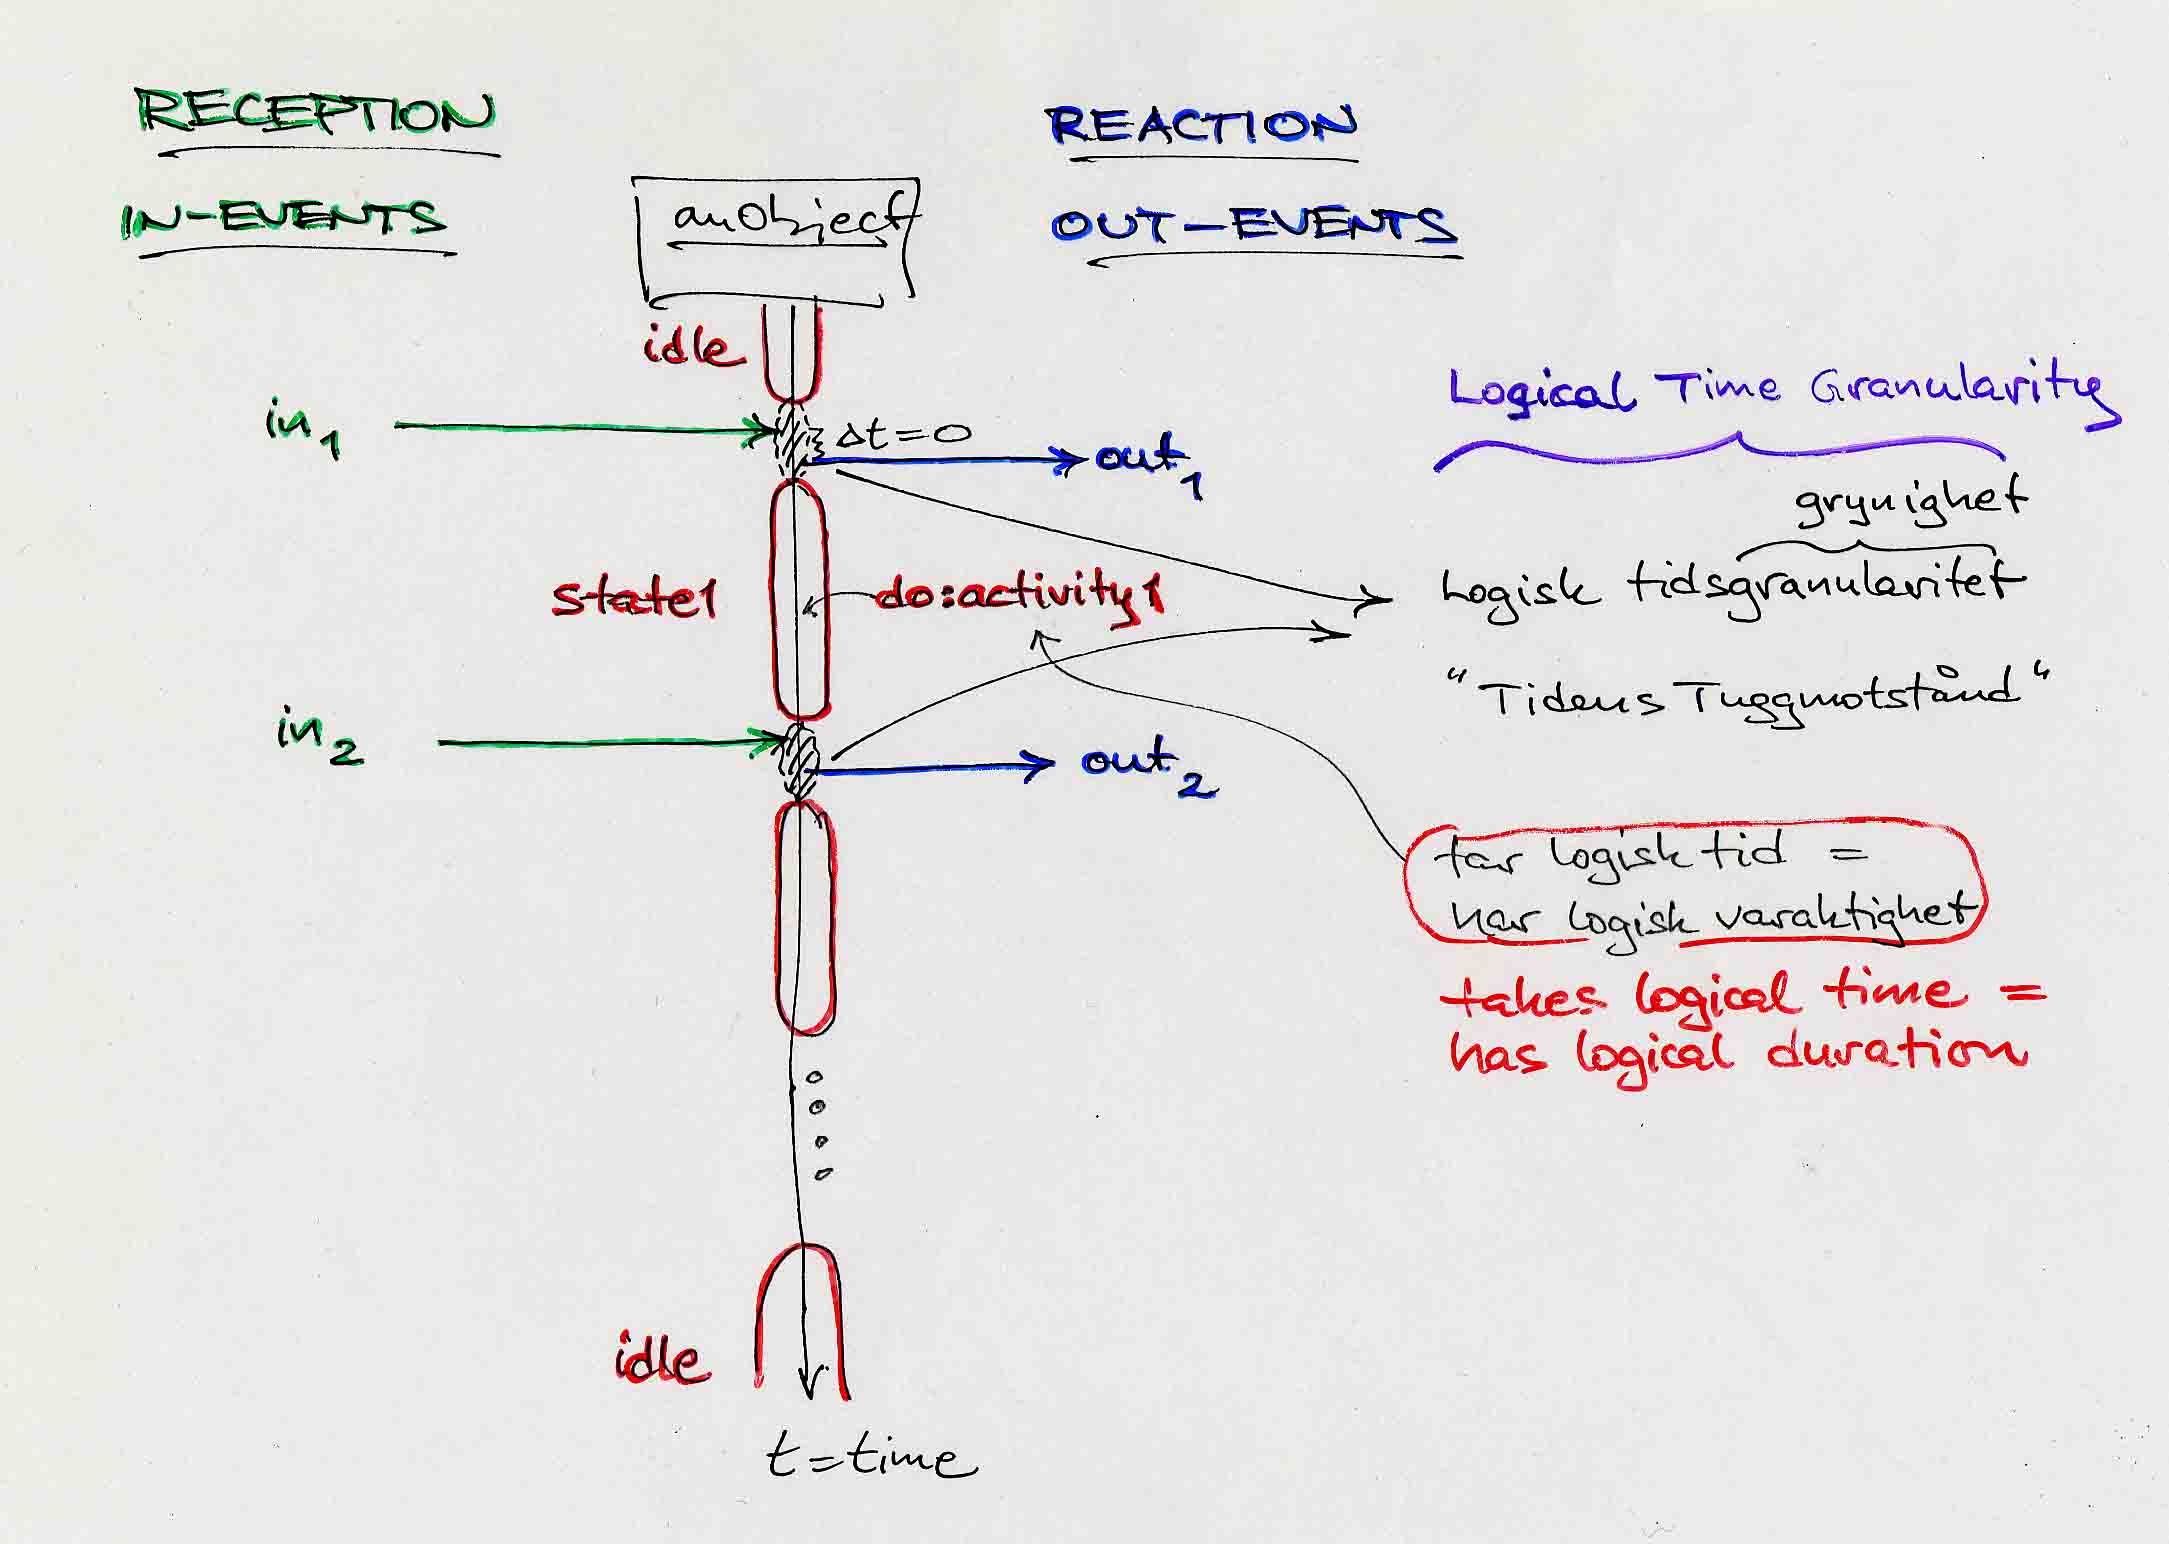 RECEPTION
IN-EVENTS
REACTION
OUT-EVENTS
anObject
idle
in1
Δt=0
out1
Logical Time Granularity
grynighet
Logisk tidsgranularitet
"Tidens Tuggmotstånd"
state1
do:activity1
in2
out2
tar logisk tid =
har logisk varaktighet
takes logical time =
has logical duration
idle
t=time